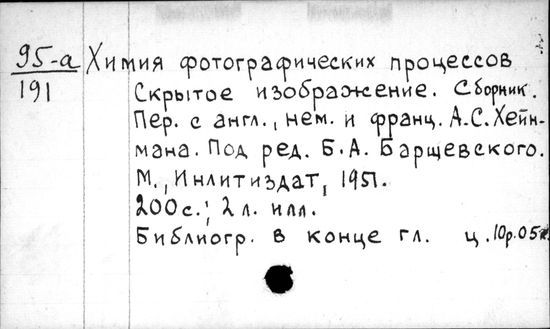 95-а
191
Химия фотографических процессов
Скрытое изображение. Сборник.
Пер. с англ., нем. и франц. А.С. Хейн-
мана. Под ред. Б.А. Барщевского.
М., Инлитиздат, 1951.
200 с.; 2 л. илл.
Библиогр. в конце гл. ц. 10р.05к.